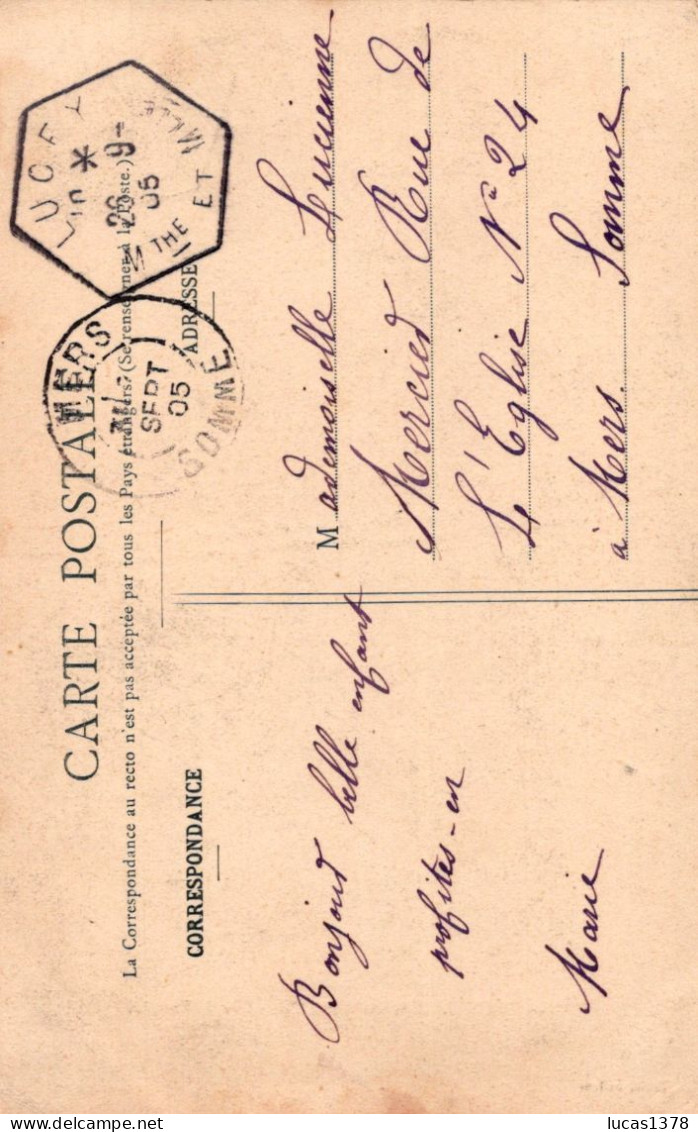 CARTE POSTALE
La Correspondance au recto n'est pas acceptée par tous les Pays étrangers. (Se renseigner à la Poste.)
CORRESPONDANCE
ADRESSE
Bonjour belle enfant
profites-en
Marie
Mademoiselle Lucienne
Mercier Rue de
L'Eglise N° 24
à Mers. Somme
LUCEY
26 - 9
05
MTHE ET MLLE
MERS
SEPT
05
SOMME
delcampe.net
lucas1378